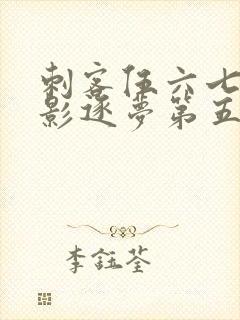 刺客伍六七
影逐梦第五
李钰荃